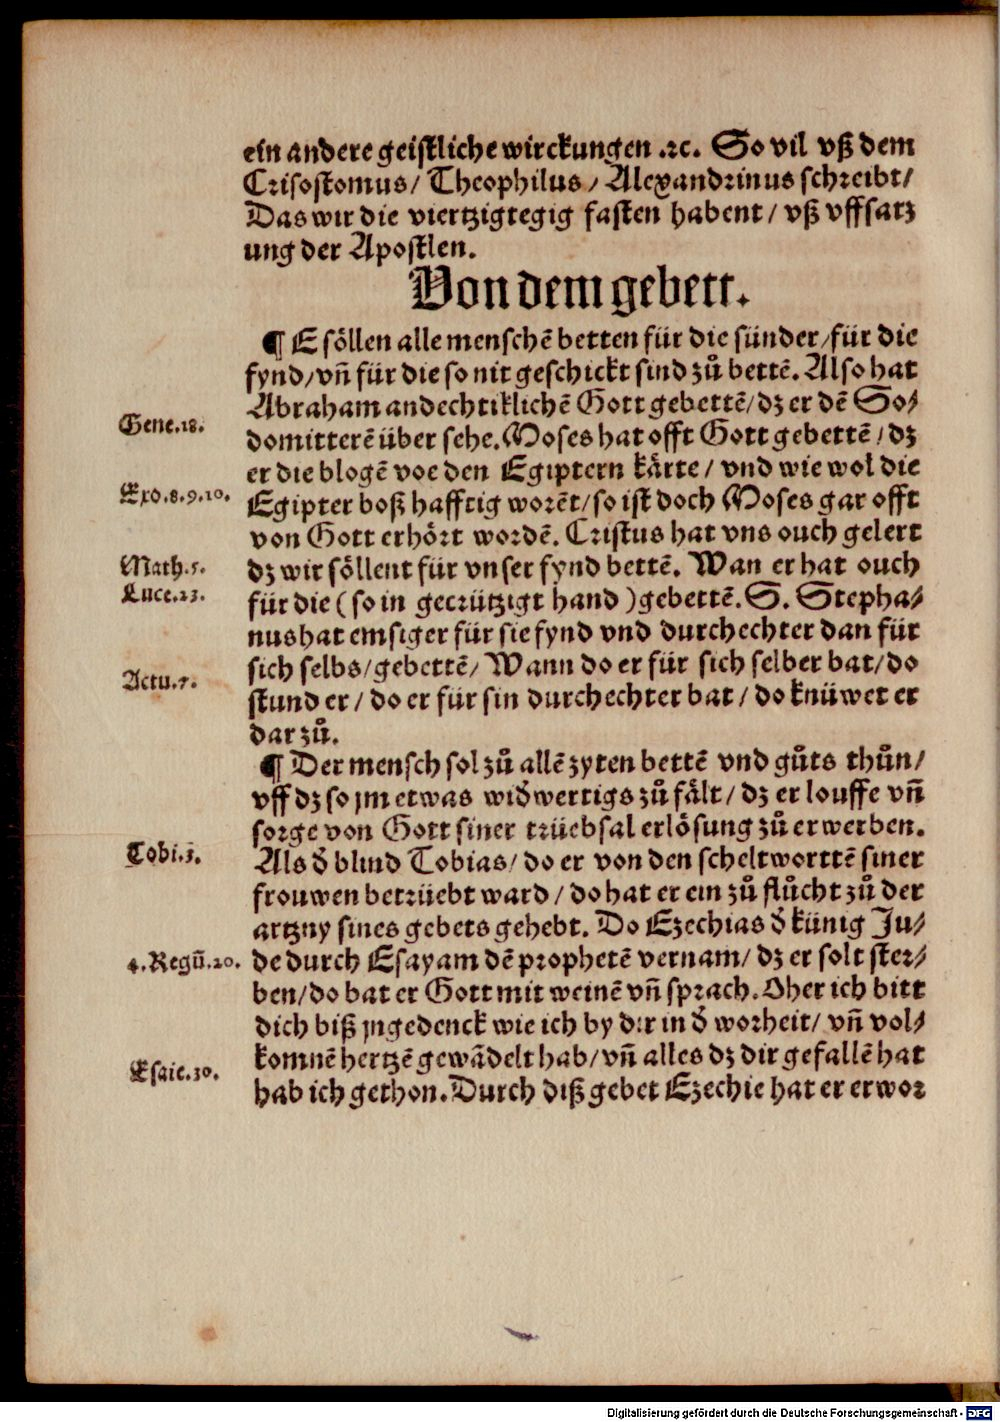 ein andere geistliche wirckungen .ꝛc. So vil vß dem
Crisostomus/ Theophilus/ Alexandrinus schreibt/
Das wir die viertzigtegig fasten habent/ vß vffsatz
ung der Apostlen.
Von dem gebett.
¶ E söllen alle menschē betten für die sünder/für die
fynd/vn̄ für die so nit geschickt sind zů bettē. Also hat
Abraham andechtiklichē Gott gebettē/dz er dē So⸗
Gene.18.
domitterē über sehe. Moses hat offt Gott gebettē/dz
er die blogē voe den Egiptern kärte/ vnd wie wol die
Exo.8.9.10.
Egipter boß hafftig worēt/so ist doch Moses gar offt
von Gott erhört wordē. Cristus hat vns ouch gelert
Math.5.
dz wir söllent für vnser fynd bettē. Wan er hat ouch
Luce.23.
für die (so in gecrützigt hand )gebettē. S. Stepha⸗
nus hat emsiger für sie fynd vnd durchechter dan für
sich selbs/gebettē/ Wann do er für sich selber bat/do
Actu.7.
stund er/ do er für sin durchechter bat/ do knüwet er
dar zů.
¶ Der mensch sol zů allē zyten bettē vnd gůts thůn/
vff dz so jm etwas wid̕wertigs zů fält/ dz er louffe vn̄
sorge von Gott siner trüebsal erlösung zů erwerben.
Tobi.3.
Als d̕ blind Tobias/ do er von den scheltworttē siner
frouwen betrüebt ward/ do hat er ein zů flůcht zů der
artzny sines gebets gehebt. Do Ezechias d̕ künig Ju⸗
4.Regū.20.
de durch Esayam dē prophetē vernam/ dz er solt ster⸗
ben/do bat er Gott mit weinē vn̄ sprach. Oher ich bitt
dich biß jngedenck wie ich by dir in d̕ worheit/ vn̄ vol⸗
komnē hertzē gewādelt hab/vn̄ alles dz dir gefallē hat
Esaie.30.
hab ich gethon. Durch diß gebet Ezechie hat er erwor
Digitalisierung gefördert durch die Deutsche Forschungsgemeinschaft - DFG